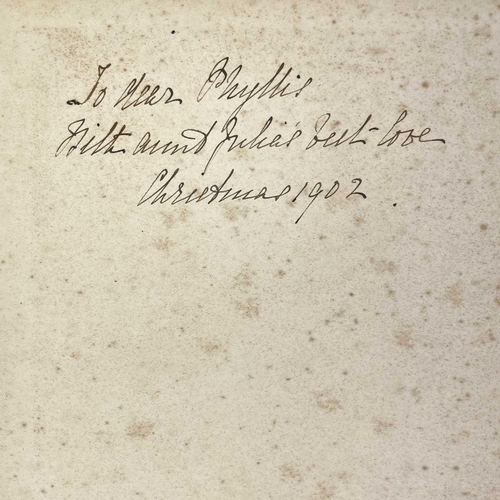 To dear Phyllis
With aunt Julia's best love
Christmas 1902.